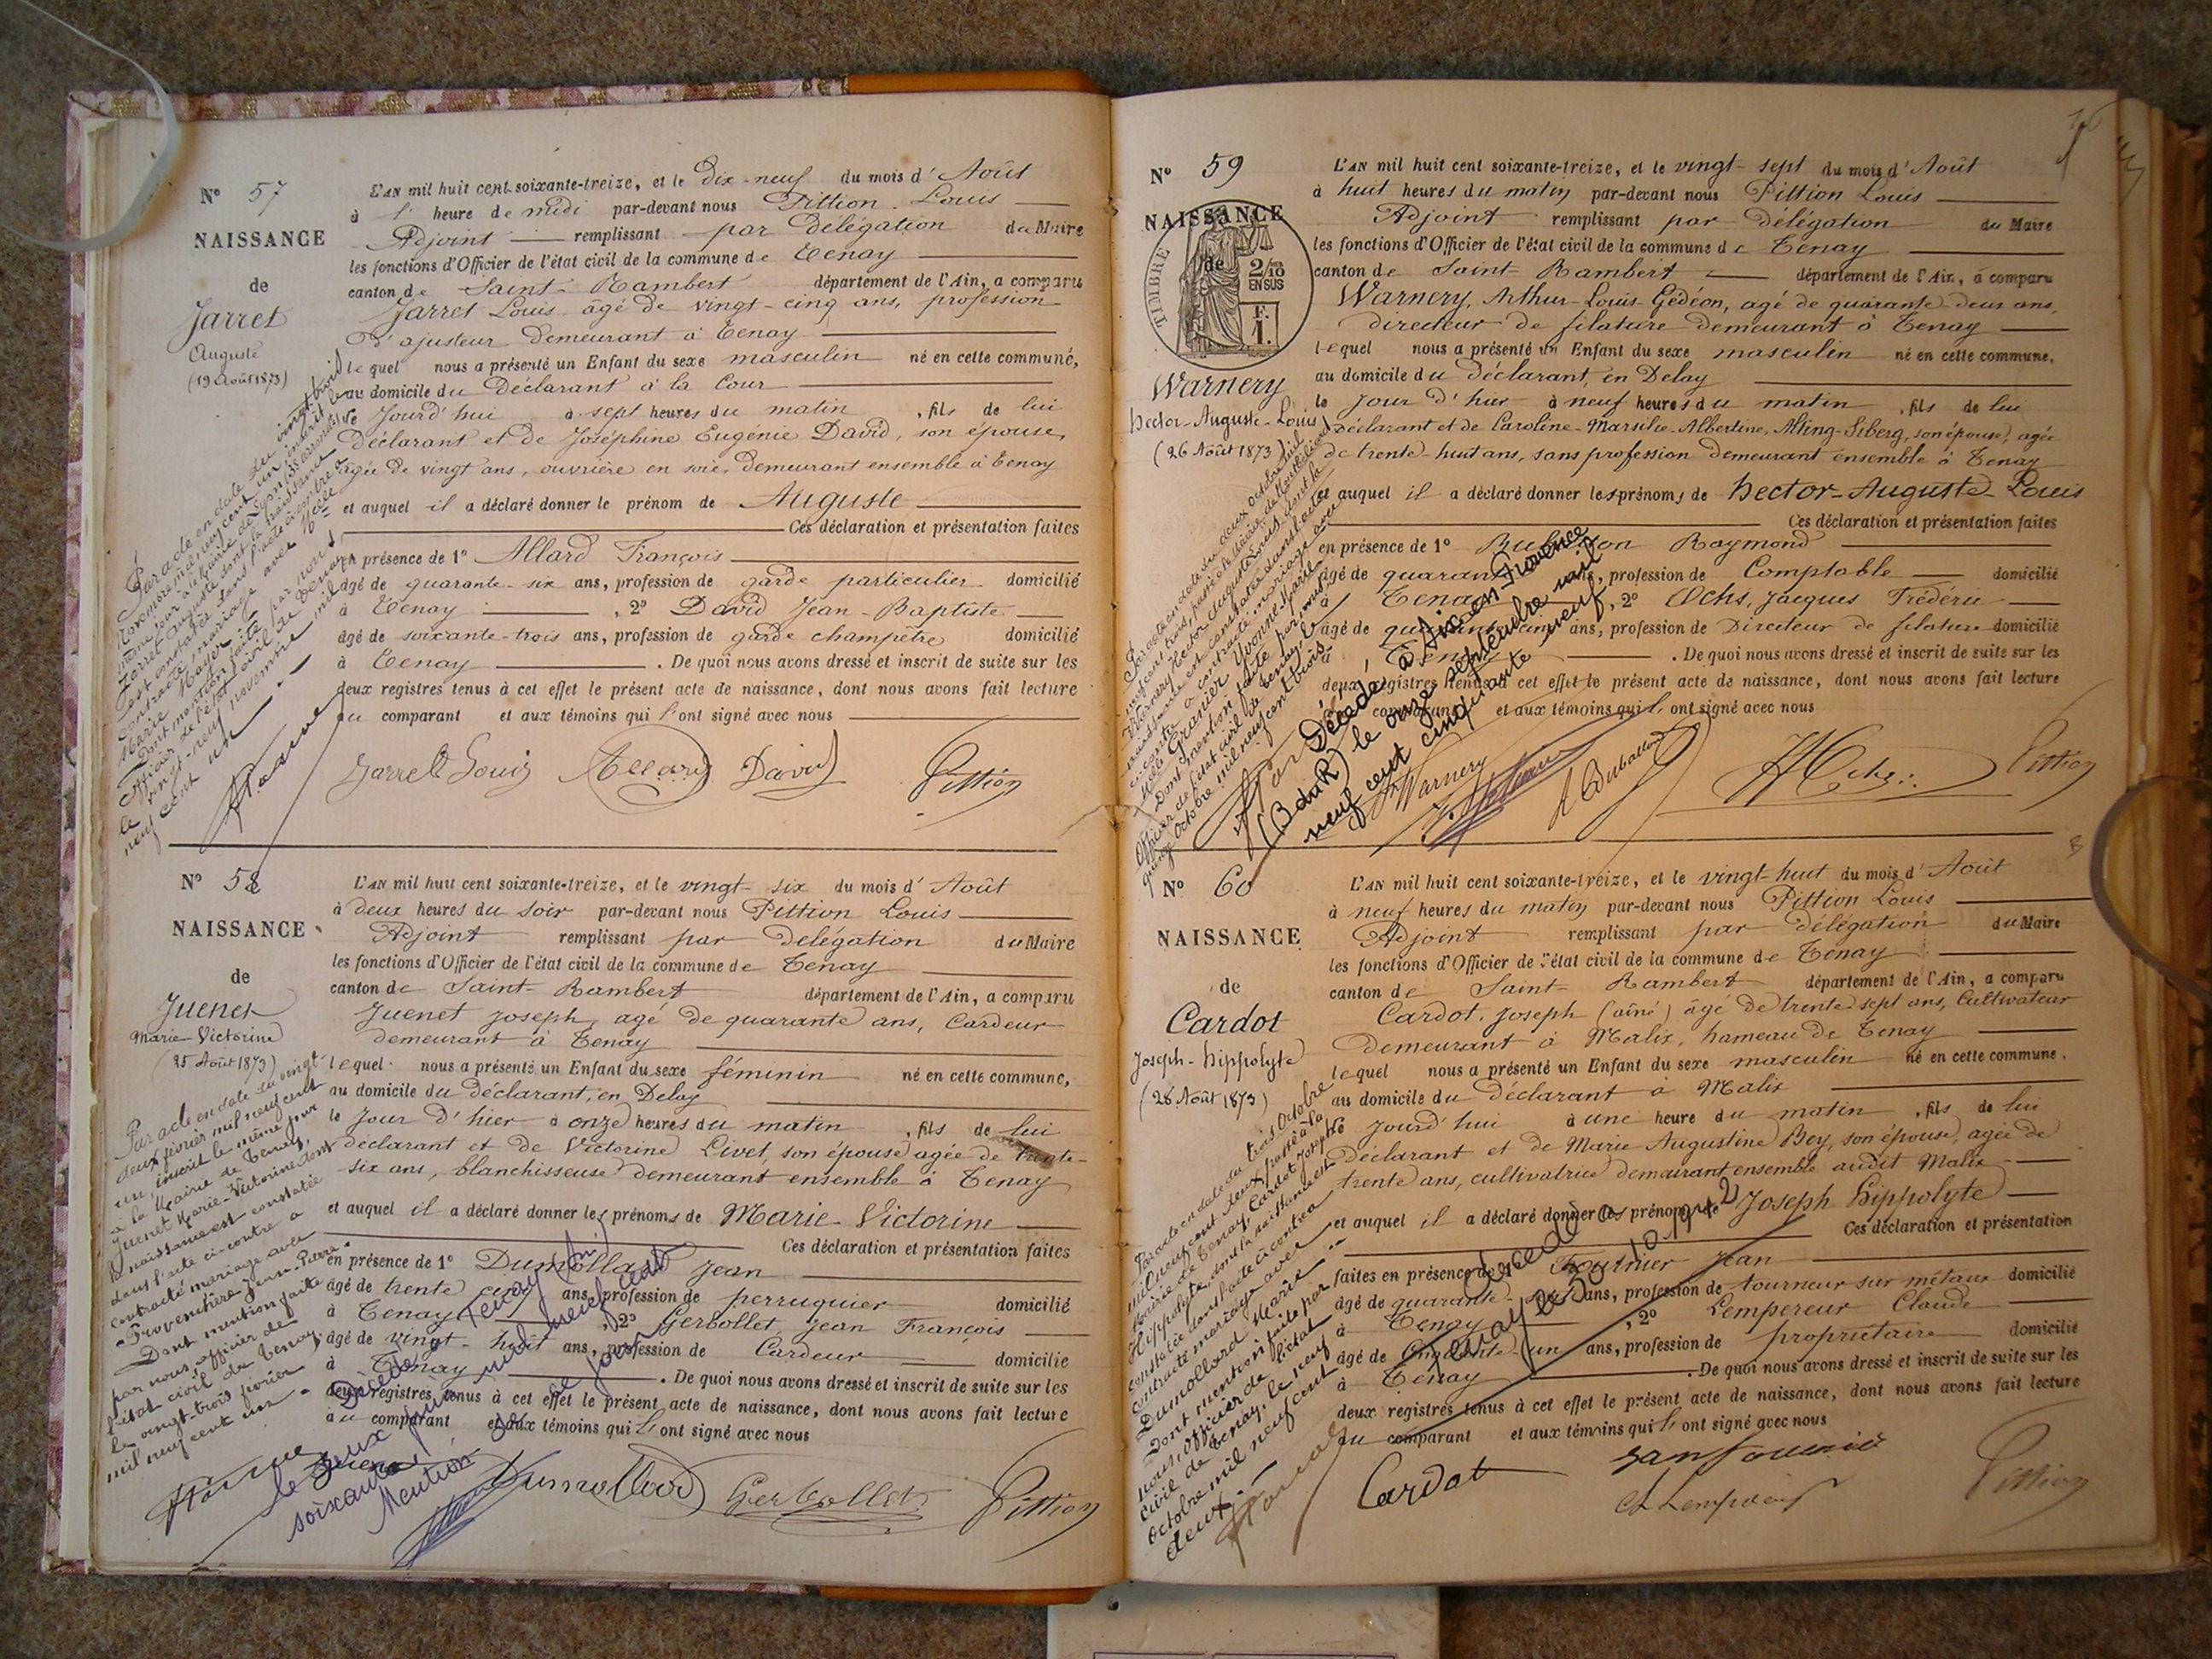 N° 57
NAISSANCE
de
Jarret
Auguste
(19 Août 1873)
L'AN mil huit cent soixante-treize, et le dix-neuf du mois d'Août
à 1 heure de midi par-devant nous Pittion Louis
Adjoint remplissant par Délégation du Maire
les fonctions d'Officier de l'état civil de la commune de Tenay
canton de Saint-Rambert département de l'Ain, a comparu
Jarret Louis âgé de vingt-cinq ans, profession
d'ajusteur demeurant à Tenay
lequel nous a présenté un Enfant du sexe masculin né en cette commune,
au domicile du Déclarant à la Cour
le Jourd'hui à sept heures du matin, fils de lui
Déclarant et de Joséphine Eugénie David, son épouse,
âgée de vingt ans, ouvrière en soie, demeurant ensemble à Tenay
et auquel il a déclaré donner le prénom de Auguste
Ces déclaration et présentation faites
en présence de 1° Allard François
âgé de quarante-six ans, profession de garde particulier domicilié
à Tenay, 2° David Jean-Baptiste
âgé de soixante-trois ans, profession de garde champêtre domicilié
à Tenay. De quoi nous avons dressé et inscrit de suite sur les
deux registres tenus à cet effet le présent acte de naissance, dont nous avons fait lecture
au comparant et aux témoins qui l'ont signé avec nous
Jarret Louis Allard David Pittion
Par acte en date du vingt-trois
Novembre mil neuf cent un, inscrit le
même jour à la Mairie de Lyon
Jarret Auguste dont la naissance
est constatée dans l'acte ci-contre a
contracté mariage avec Melle
Marie Mayer
Dont mention faite par nous
Officier de l'état civil de Tenay
le vingt-neuf novembre mil
neuf cent un
N° 58
NAISSANCE
de
Juenet
Marie-Victorine
(25 Août 1873)
L'AN mil huit cent soixante-treize, et le vingt-six du mois d'Août
à deux heures du soir par-devant nous Pittion Louis
Adjoint remplissant par Délégation du Maire
les fonctions d'Officier de l'état civil de la commune de Tenay
canton de Saint-Rambert département de l'Ain, a comparu
Juenet Joseph, agé de quarante ans, Cardeur
demeurant à Tenay
lequel nous a présenté un Enfant du sexe féminin né en cette commune,
au domicile du Déclarant, en Delay
le Jour d'hier à onze heures du matin, fils de lui
déclarant et de Victorine Livet, son épouse agée de trente-
six ans, blanchisseuse demeurant ensemble à Tenay
et auquel il a déclaré donner les prénoms de Marie-Victorine
Ces déclaration et présentation faites
en présence de 1° Dumollard Jean
âgé de trente ans, profession de perruquier domicilié
à Tenay, 2° Gerbollet Jean François
âgé de vingt-huit ans, profession de Cardeur domicilié
à Tenay. De quoi nous avons dressé et inscrit de suite sur les
deux registres tenus à cet effet le présent acte de naissance, dont nous avons fait lecture
au comparant et aux témoins qui l'ont signé avec nous
Juenet Dumollard Gerbollet Pittion
Par acte en date du vingt-
deux février mil neuf cent
un, inscrit le même jour
à la Mairie de Tenay,
Juenet Marie-Victorine dont
la naissance est constatée
dans l'acte ci-contre a
contracté mariage avec
Provenchère Jean-Pierre.
Dont mention faite
par nous, officier de
l'état civil de Tenay,
le vingt-trois février
mil neuf cent un.
Décédée à Tenay (Ain)
le deux juin mil neuf cent
soixante
Mention ce jour
N° 59
NAISSANCE
de
TIMBRE
2/10
EN SUS
F.
1.
Warnery
Hector-Auguste-Louis
(26 Août 1873)
L'AN mil huit cent soixante-treize, et le vingt-sept du mois d'Août
à huit heures du matin par-devant nous Pittion Louis
Adjoint remplissant par Délégation du Maire
les fonctions d'Officier de l'état civil de la commune de Tenay
canton de Saint-Rambert département de l'Ain, a comparu
Warnery, Arthur-Louis-Gédéon, agé de quarante-deux ans,
directeur de filature demeurant à Tenay
lequel nous a présenté un Enfant du sexe masculin né en cette commune,
au domicile du déclarant, en Delay
le Jour d'hier à neuf heures du matin, fils de lui
Déclarant et de Caroline-Marsilie-Albertine, Alting-Siberg, son épouse, agée
de trente-huit ans, sans profession demeurant ensemble à Tenay
et auquel il a déclaré donner les prénoms de Hector-Auguste-Louis
Ces déclaration et présentation faites
en présence de 1° Raymond
âgé de ans, profession de Comptable domicilié
à Tenay, 2° Ochs, Jacques Frédéric
âgé de ans, profession de Directeur de filature domicilié
à Tenay. De quoi nous avons dressé et inscrit de suite sur les
deux registres tenus à cet effet le présent acte de naissance, dont nous avons fait lecture
au comparant et aux témoins qui l'ont signé avec nous
Warnery Ochs Pittion
Par acte en date du deux octobre mil
neuf cent trois, passé à la Mairie de
Warnery Hector Auguste Louis, dont la
naissance est constatée dans l'acte
ci-contre a contracté mariage avec
Melle Granier Yvonne Marie
Dont mention faite par nous
Officier de l'état civil de Tenay, le
quinze Octobre mil neuf cent trois.
Décédé à Aix-en-Provence
(B du R) le onze septembre mil
neuf cent cinquante neuf
N° 60
NAISSANCE
de
Cardot
Joseph-Hippolyte
(28 Août 1873)
L'AN mil huit cent soixante-treize, et le vingt-huit du mois d'Août
à neuf heures du matin par-devant nous Pittion Louis
Adjoint remplissant par Délégation du Maire
les fonctions d'Officier de l'état civil de la commune de Tenay
canton de Saint-Rambert département de l'Ain, a comparu
Cardot, Joseph (aîné) âgé de trente-sept ans, Cultivateur
demeurant à Malix, hameau de Tenay
lequel nous a présenté un Enfant du sexe masculin né en cette commune,
au domicile du Déclarant à Malix
le Jourd'hui à une heure du matin, fils de lui
Déclarant et de Marie Augustine Bey, son épouse, agée de
trente ans, cultivatrice demeurant ensemble audit Malix
et auquel il a déclaré donner les prénoms de Joseph Hippolyte
Ces déclaration et présentation
faites en présence de 1° Fournier Jean
âgé de quarante ans, profession de tourneur sur métaux domicilié
à Tenay, 2° Lempereur Claude
âgé de cinquante-un ans, profession de propriétaire domicilié
à Tenay. De quoi nous avons dressé et inscrit de suite sur les
deux registres tenus à cet effet le présent acte de naissance, dont nous avons fait lecture
au comparant et aux témoins qui l'ont signé avec nous
Cardot Jean Fournier Cl Lempereur Pittion
Par acte en date du trois Octobre
mil neuf cent deux, passé à la
Mairie de Tenay, Cardot Joseph
Hippolyte, dont la naissance est
constatée dans l'acte ci-contre a
contracté mariage avec
Dumollard Marie
Dont mention faite par
nous, officier de l'état
civil de Tenay, le neuf
Octobre mil neuf cent
deux.
décédé à
Tenay le 30.10.1942